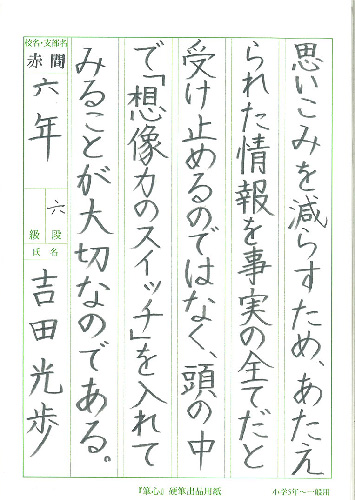 思いこみを減らすため、あたえ
られた情報を事実の全てだと
受け止めるのではなく、頭の中
で「想像力のスイッチ」を入れて
みることが大切なのである。
校名・支部名
赤間
六年
六
級段
氏名
吉田光歩
『筆心』硬筆出品用紙
小学5年〜一般用